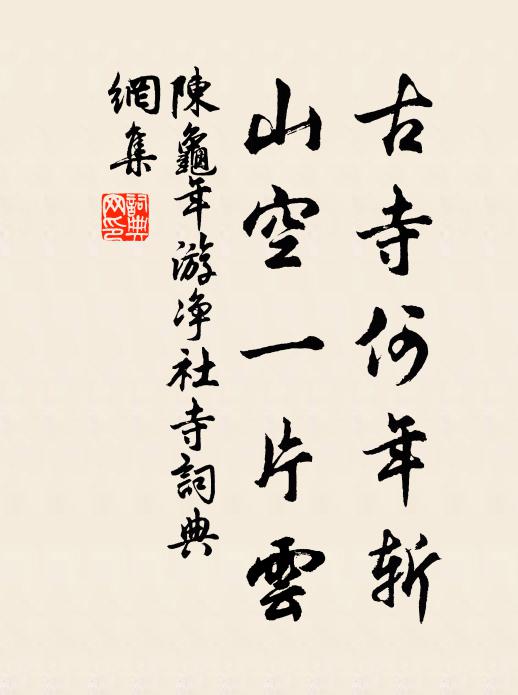 古寺何年斬
山空一片雲
陳龜年游净社寺詞典
網集
詞典
网印